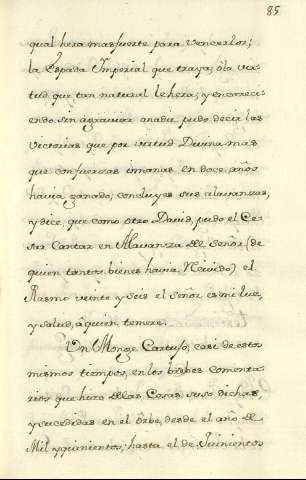 85
qual hera mas fuerte para vencerlos;
la Espada Imperial que traya, ô la vir-
tud que tan natural le hera; y encareci-
endo sin agraviar anadie, pudo decir las
victorias que por virtud Divina mas
que confuerzas imanas en doce años
havia ganado; concluye sus alavanzas,
y dice, que como otro David, pudo el Ce-
sar Cantar en Alavanza del Señor (de
quien tantos bienes havia Revido) el
Psasmo veinte y seis el señor es mi luz,
y salud, â quien temere.
Un Monge Cartujo, casi de estos
mismos tiempos, en los brebes comenta-
rios que hizo delas Cosas suso dichas,
y sucedidas en el Orbe, desde el año de
Mil y quinientos, hasta el de Quinientos